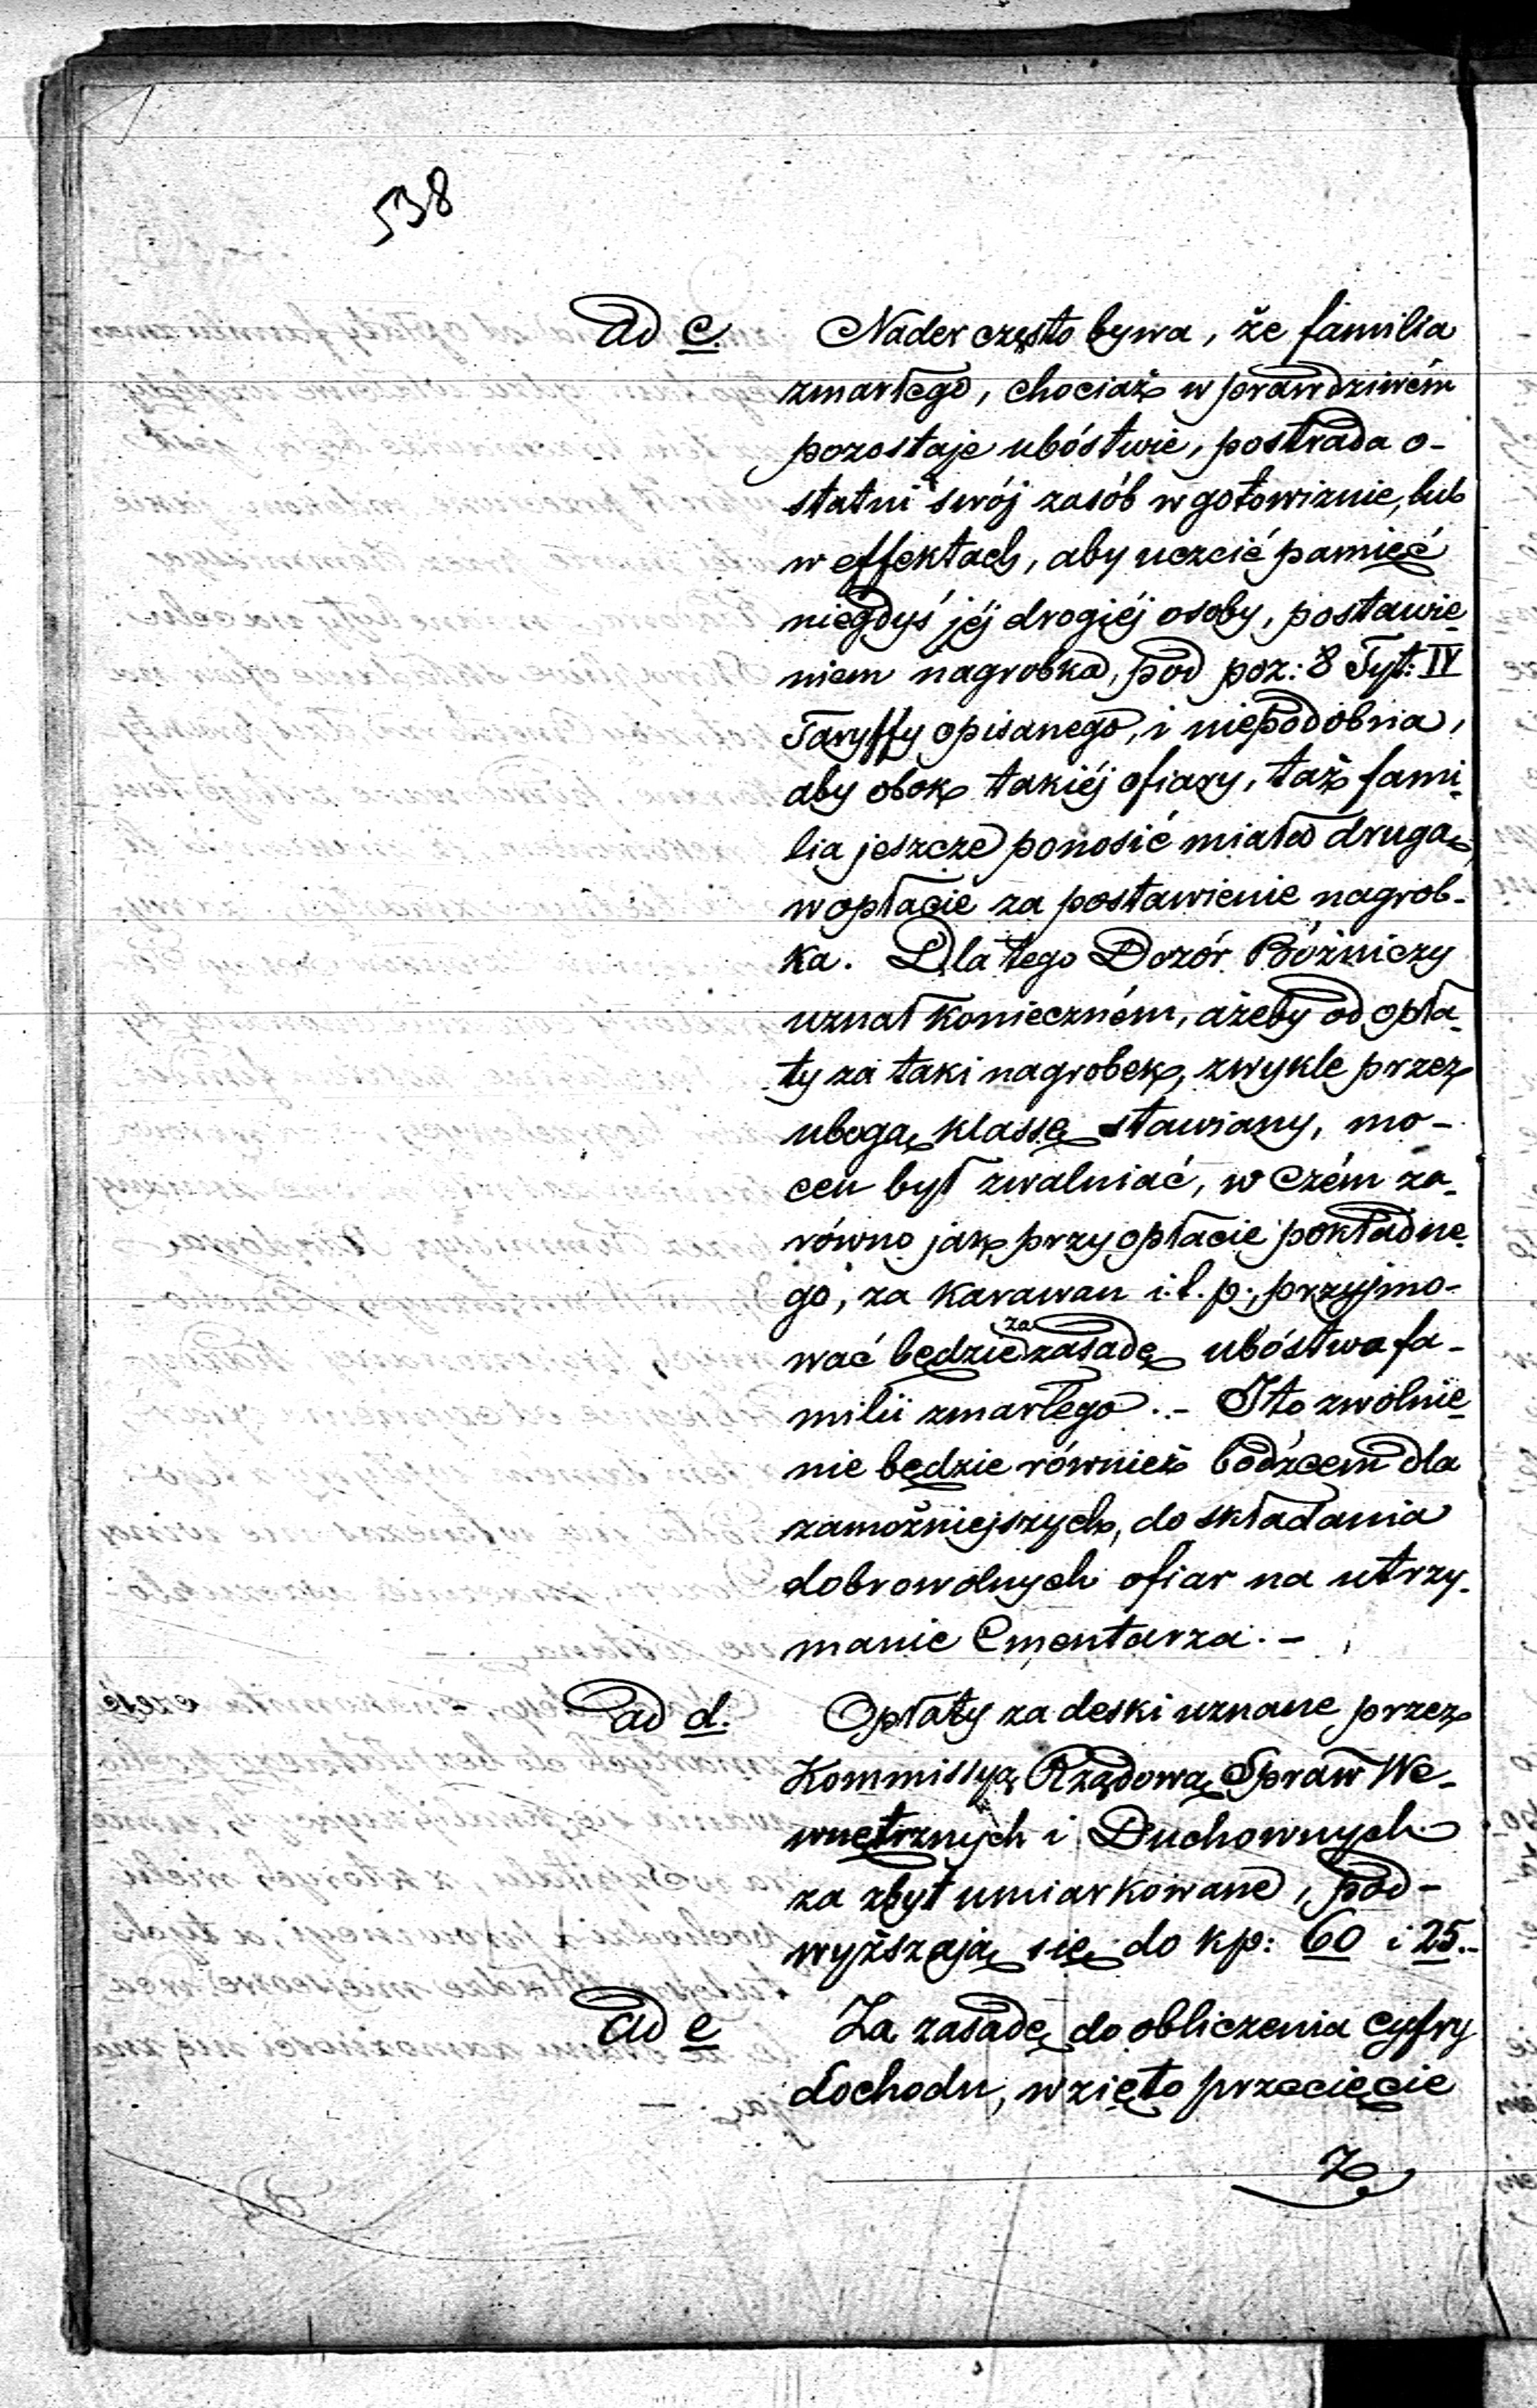 538
ad c. Nader często bywa, że familia
zmarłego, chociaż w prawdziwém
pozostaje ubóstwie, postrada o-
statni swój zasób w gotowiznie, lub
w effektach, aby uczcić pamięć
niegdyś jéj drogiéj osoby, postawie-
niem nagrobka, pod poz: 8 Tyt: IV
Taryffy opisanego, i niepodobna,
aby obok takiéj ofiary, taż fami-
lia jeszcze ponosić miała drugą,
w opłacie za postawienie nagrob-
ka. Dla tego Dozór Bóżniczy
uznał konieczném, ażeby od opła-
ty za taki nagrobek, zwykle przez
ubogą klassę stawiany, mo-
cen był zwalniać, w czém za-
równo jak przy opłacie pokładne-
go, za karawan i.t.p., przyjmo-
wać będzie za zasadę ubóstwo fa-
milii zmarłego. - I to zwolnie-
nie będzie również bodźcem dla
zamożniejszych, do składania
dobrowolnych ofiar na utrzy-
manie Cmentarza. -
ad d. Opłaty za deski uznane przez
Kommissyą Rządową Spraw We-
wnętrznych i Duchownych
za zbyt umiarkowane, pod-
wyższają się do kp: 60 i 25.-
ad e Za zasadę do obliczenia cyfry
dochodu, wzięto przecięcie
Z